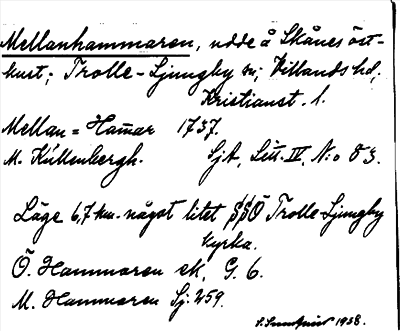 Mellanhammaren, udde å Skånes öst-
kust; Trolle-Ljungby sn; Villands hd,
Kristianst. l.
Mellan = Hamar 1737.
M. Küllenbergh. SjA, Litt. IV, N:o 83.
Läge 6,7 km. något litet SSÖ Trolle-Ljungby
kyrka.
Ö. Hammaren ek, G. 6.
M. Hammaren Sj. 259.
1938.